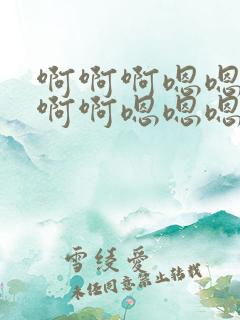 啊啊啊嗯嗯
啊啊嗯嗯嗯
雪绫爱
未经同意禁止转载